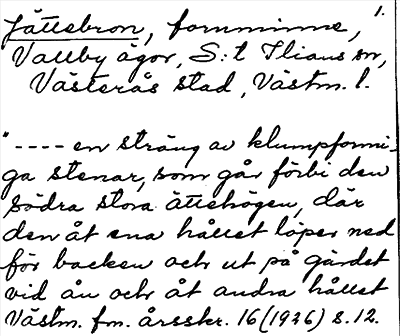 Jättebron, fornminne, 1.
Vallby ägor, S:t Ilians sn,
Västerås stad, Västm. l.
"---- en sträng av klumpformi-
ga stenar, som går förbi den
södra stora ättehögen, där
den åt ena hållet löper ned
för backen och ut på gärdet
vid ån och åt andra hållet
Västm. fm. årsskr. 16 (1926) s. 12.